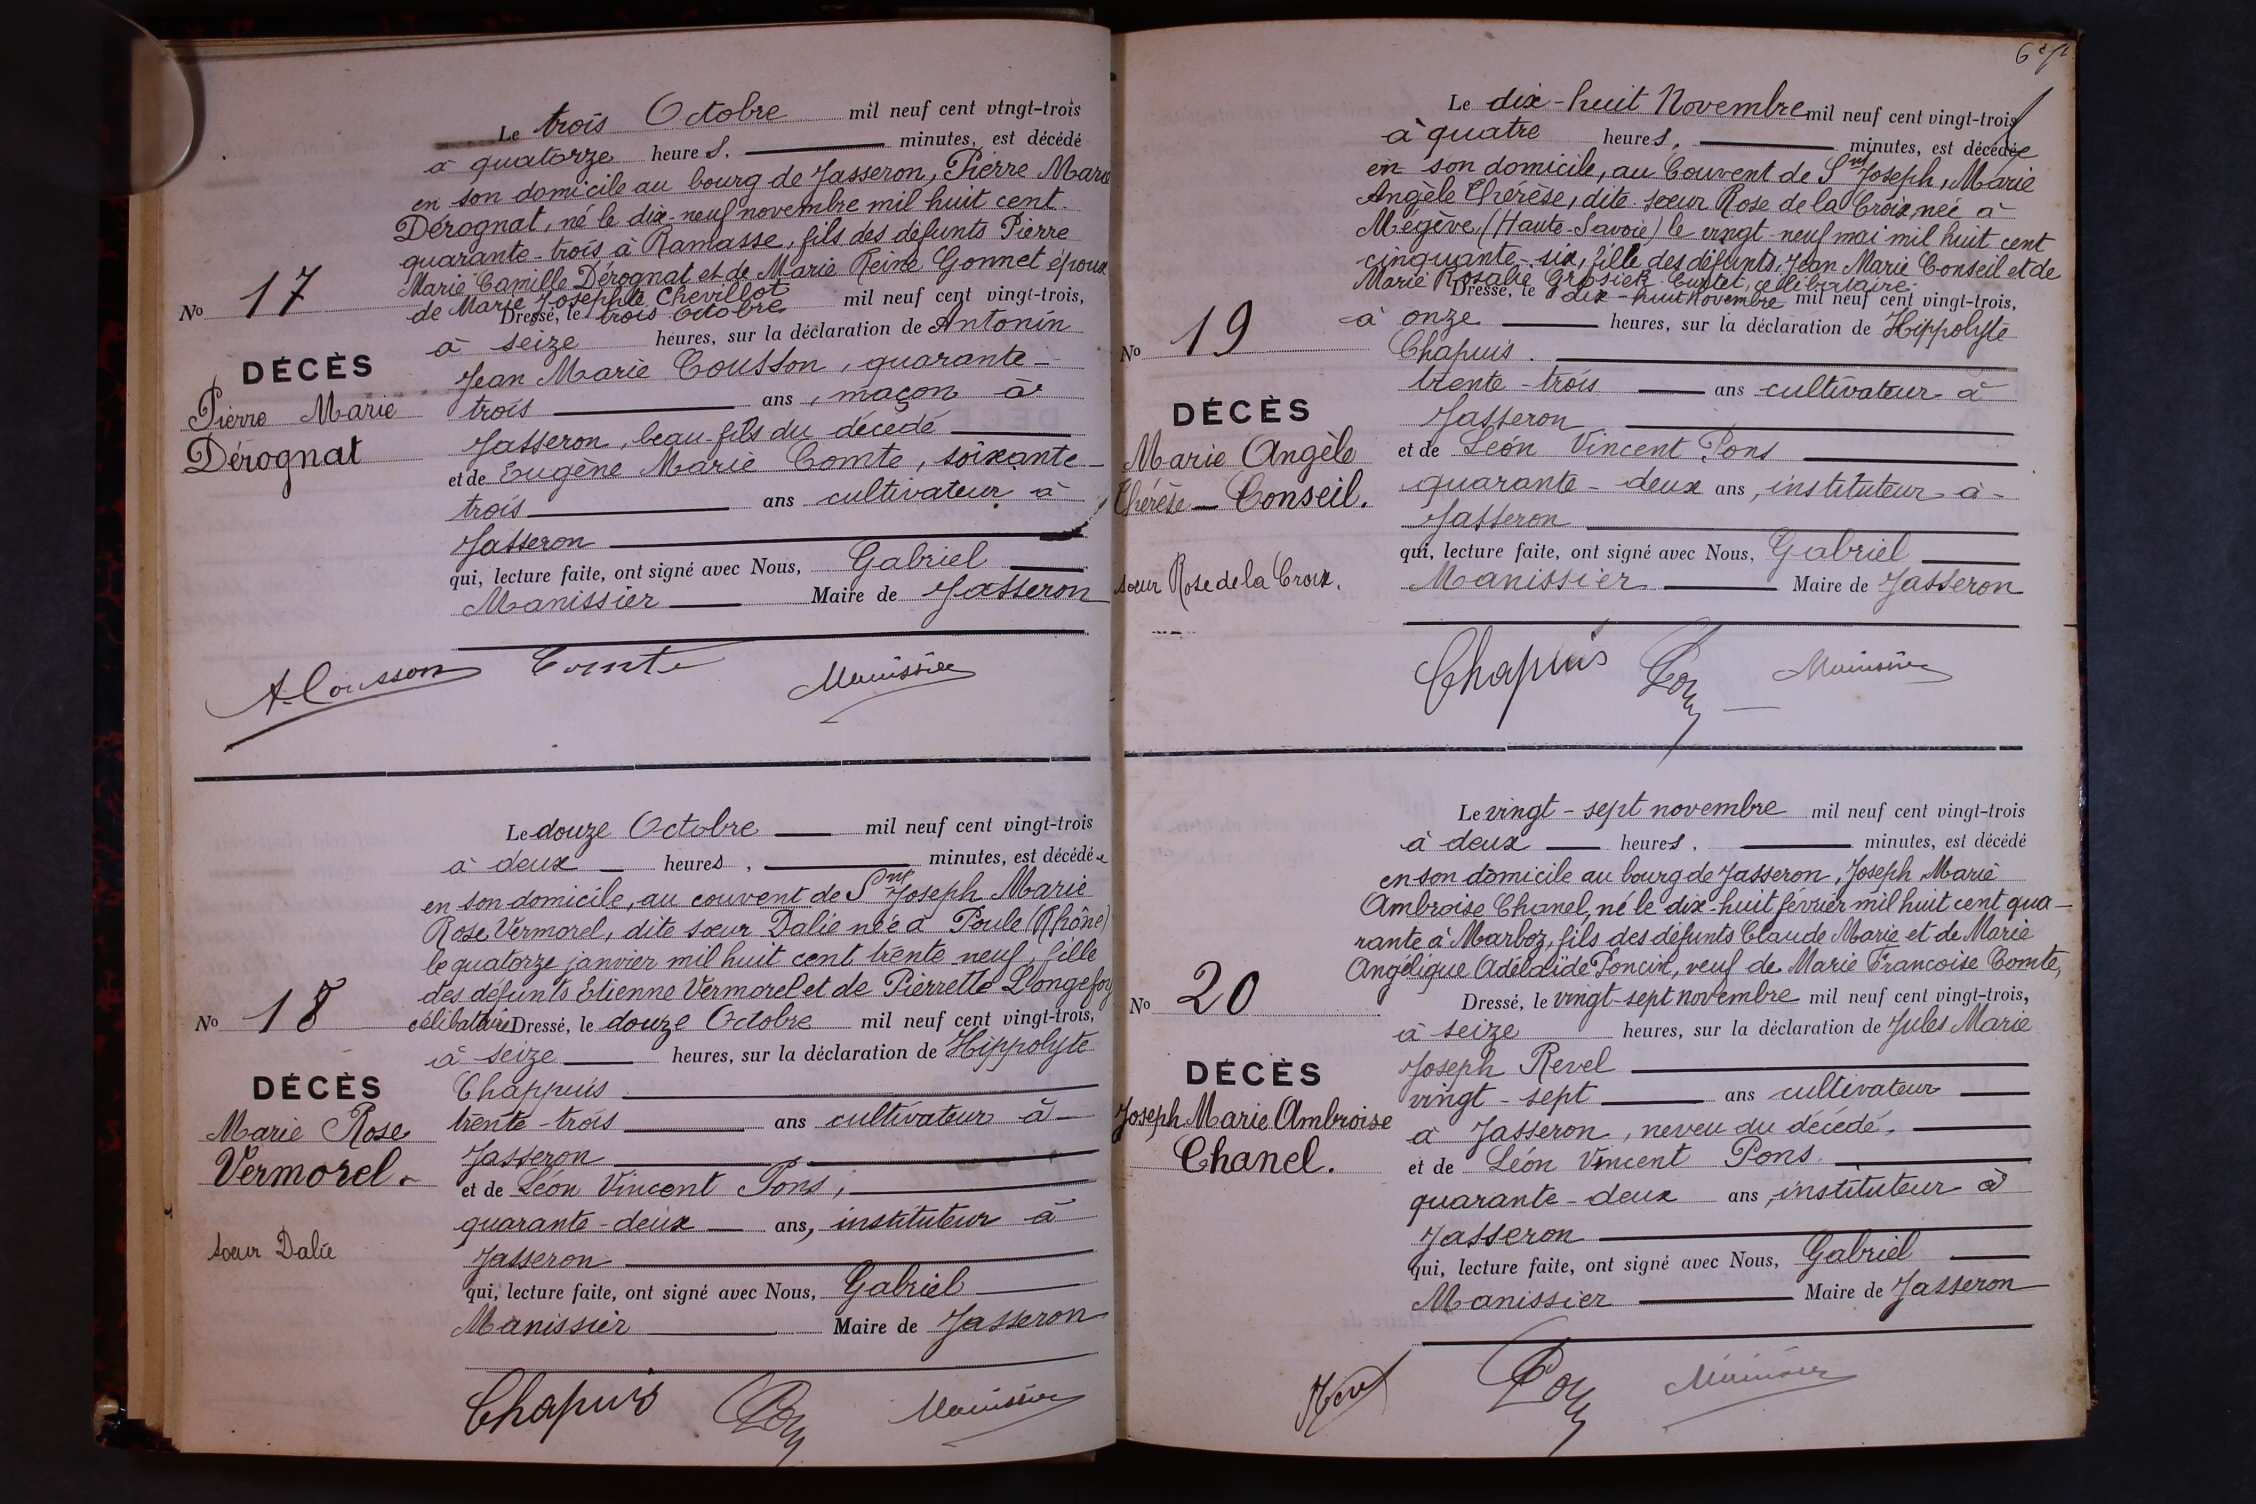 Le trois Octobre mil neuf cent vingt-trois
à quatorze heures, minutes, est décédé
en son domicile au bourg de Jasseron, Pierre Marie
Dérognat, né le dix-neuf novembre mil huit cent
quarante-trois à Ramasse, fils des défunts Pierre
Marie Camille Dérognat et de Marie Reine Gonnet époux
de Marie Josephte Chevillot
No 17
Dressé, le trois Octobre mil neuf cent vingt-trois,
à seize heures, sur la déclaration de Antonin
DÉCÈS
Pierre Marie
Dérognat
Jean Marie Cousson, quarante-
trois ans, maçon à
Jasseron, beau-fils du décédé
et de Eugène Marie Comte, soixante-
trois ans cultivateur à
Jasseron
qui, lecture faite, ont signé avec Nous, Gabriel
Manissier Maire de Jasseron
A. Cousson Comte Manissier
Le douze Octobre mil neuf cent vingt-trois
à deux heures, minutes, est décédée
en son domicile, au couvent de St Joseph Marie
Rose Vermorel, dite sœur Dalie née à Poule (Rhône)
le quatorze janvier mil huit cent trente-neuf, fille
des défunts Etienne Vermorel et de Pierrette Longefoy
No 18
célibataire Dressé, le douze Octobre mil neuf cent vingt-trois,
à seize heures, sur la déclaration de Hippolyte
DÉCÈS
Marie Rose
Vermorel.
sœur Dalie
Chappuis
trente-trois ans cultivateur à
Jasseron
et de Léon Vincent Pons,
quarante-deux ans, instituteur à
Jasseron
qui, lecture faite, ont signé avec Nous, Gabriel
Manissier Maire de Jasseron
Chapuis Pons Manissier
Le dix-huit Novembre mil neuf cent vingt-trois
à quatre heures, minutes, est décédée
en son domicile, au Couvent de St Joseph, Marie
Angèle Thérèse, dite sœur Rose de la Croix, née à
Mégève (Haute-Savoie) le vingt-neuf mai mil huit cent
cinquante-six, fille des défunts, Jean Marie Conseil et de
Marie Rosalie célibataire
No 19
Dressé, le dix-huit Novembre mil neuf cent vingt-trois,
à onze heures, sur la déclaration de Hippolyte
DÉCÈS
Marie Angèle
Thérèse Conseil.
sœur Rose de la Croix.
Chapuis.
trente-trois ans cultivateur à
Jasseron
et de Léon Vincent Pons
quarante-deux ans, instituteur à
Jasseron
qui, lecture faite, ont signé avec Nous, Gabriel
Manissier Maire de Jasseron
Chapuis Pons Manissier
Le vingt-sept novembre mil neuf cent vingt-trois
à deux heures, minutes, est décédé
en son domicile au bourg de Jasseron, Joseph Marie
Ambroise Chanel, né le dix-huit février mil huit cent qua-
rante à Marboz, fils des défunts Claude Marie et de Marie
Angélique Adélaïde Poncin, veuf de Marie Francoise Comte,
No 20
Dressé, le vingt-sept novembre mil neuf cent vingt-trois,
à seize heures, sur la déclaration de Jules Marie
DÉCÈS
Joseph Marie Ambroise
Chanel.
Joseph Revel
vingt-sept ans cultivateur
à Jasseron, neveu du décédé,
et de Léon Vincent Pons
quarante-deux ans, instituteur à
Jasseron
qui, lecture faite, ont signé avec Nous, Gabriel
Manissier Maire de Jasseron
Revel Pons Manissier